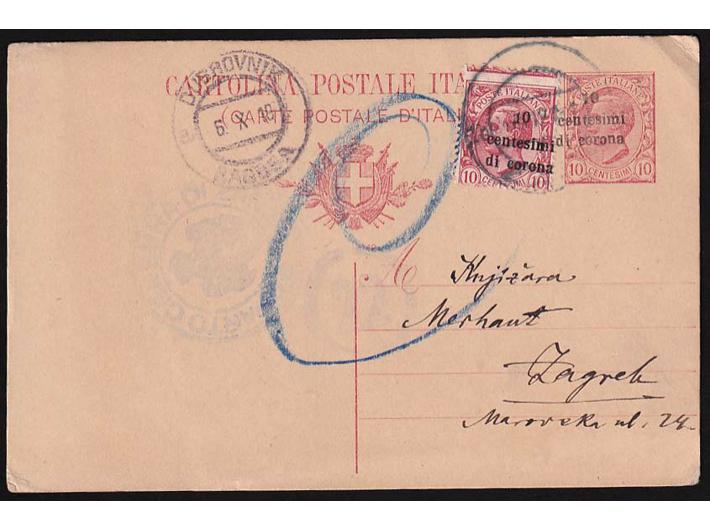 DUBROVNIK
6. X. 19
RAGUSA
CARTOLINA POSTALE ITA
(CARTE POSTALE D'ITALI
POSTE ITALIANE
10
centesimi
di corona
10 CENTESIMI 10
POSTE ITALIANE
10
centesimi
di corona
10 CENTESIMI 10
A Knjižara
Merhaut
Zagreb
Marovska ul. 24.